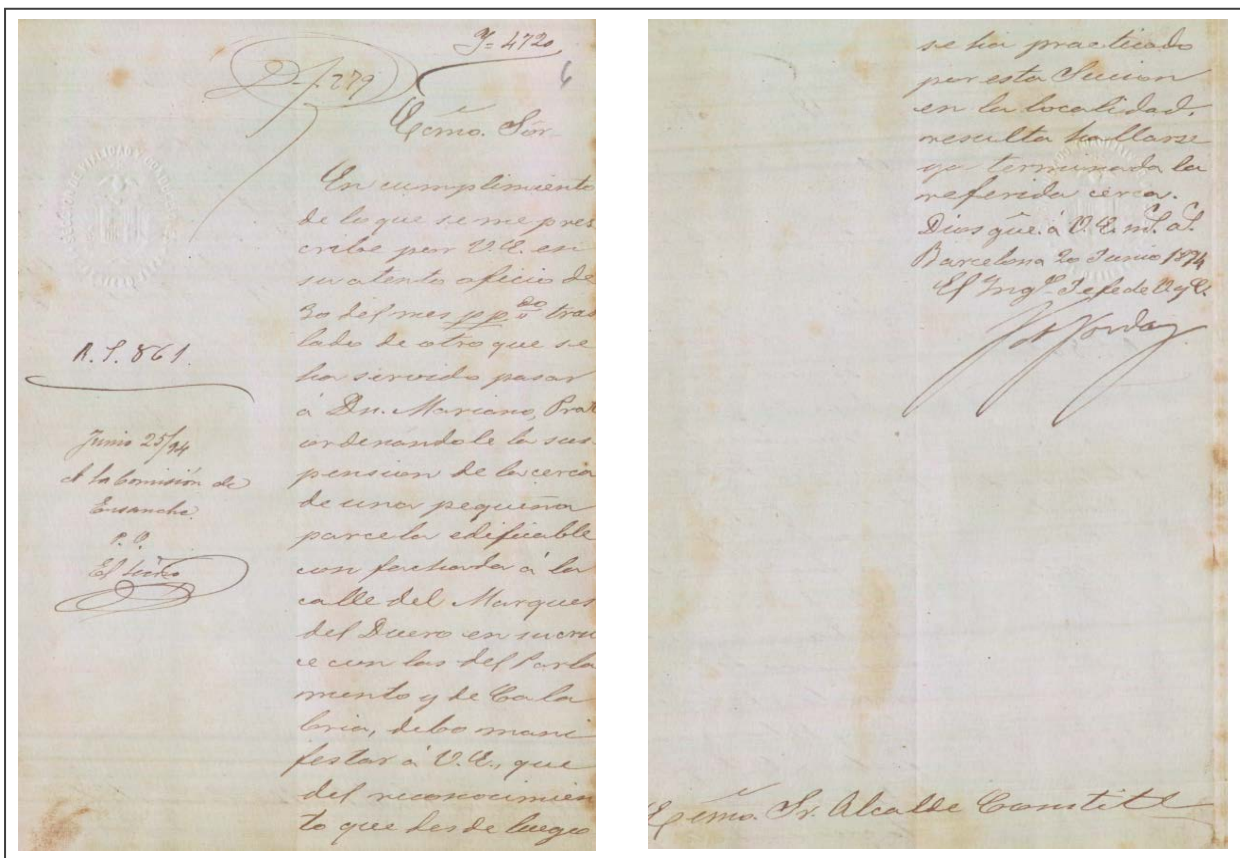 J= 4720
D-J. 279
6
Ecmõ. Sor
En cumplimiento
de lo que se me pres
cribe por V.E. en
su atento oficio de
30 del mes p.p.do tras
lado de otro que se
ha servido pasar
á Dn. Mariano, Prat
ordenandole la sus
pension de la cerca
de una pequeña
parcela edificable
con fachada á la
calle del Marques
del Duero en su cru
ce con las del Parla
mento y de Cala
bria, debo mani
festar á V.E., que
del reconocimien
to que desde luego
A. S. 861.
Junio 25/94
A la Comisión de
Ensanche.
P. O.
El Srio
se ha practicado
por esta Seccion
en la localidad,
resulta hallarse
ya terminada la
referida cerca.
Dios gûe. á V.E. m.s a.s
Barcelona 20 Junio 1894
El Ing.o Jefe de V. y C.
Ecmõ. Sr. Alcalde Constitl